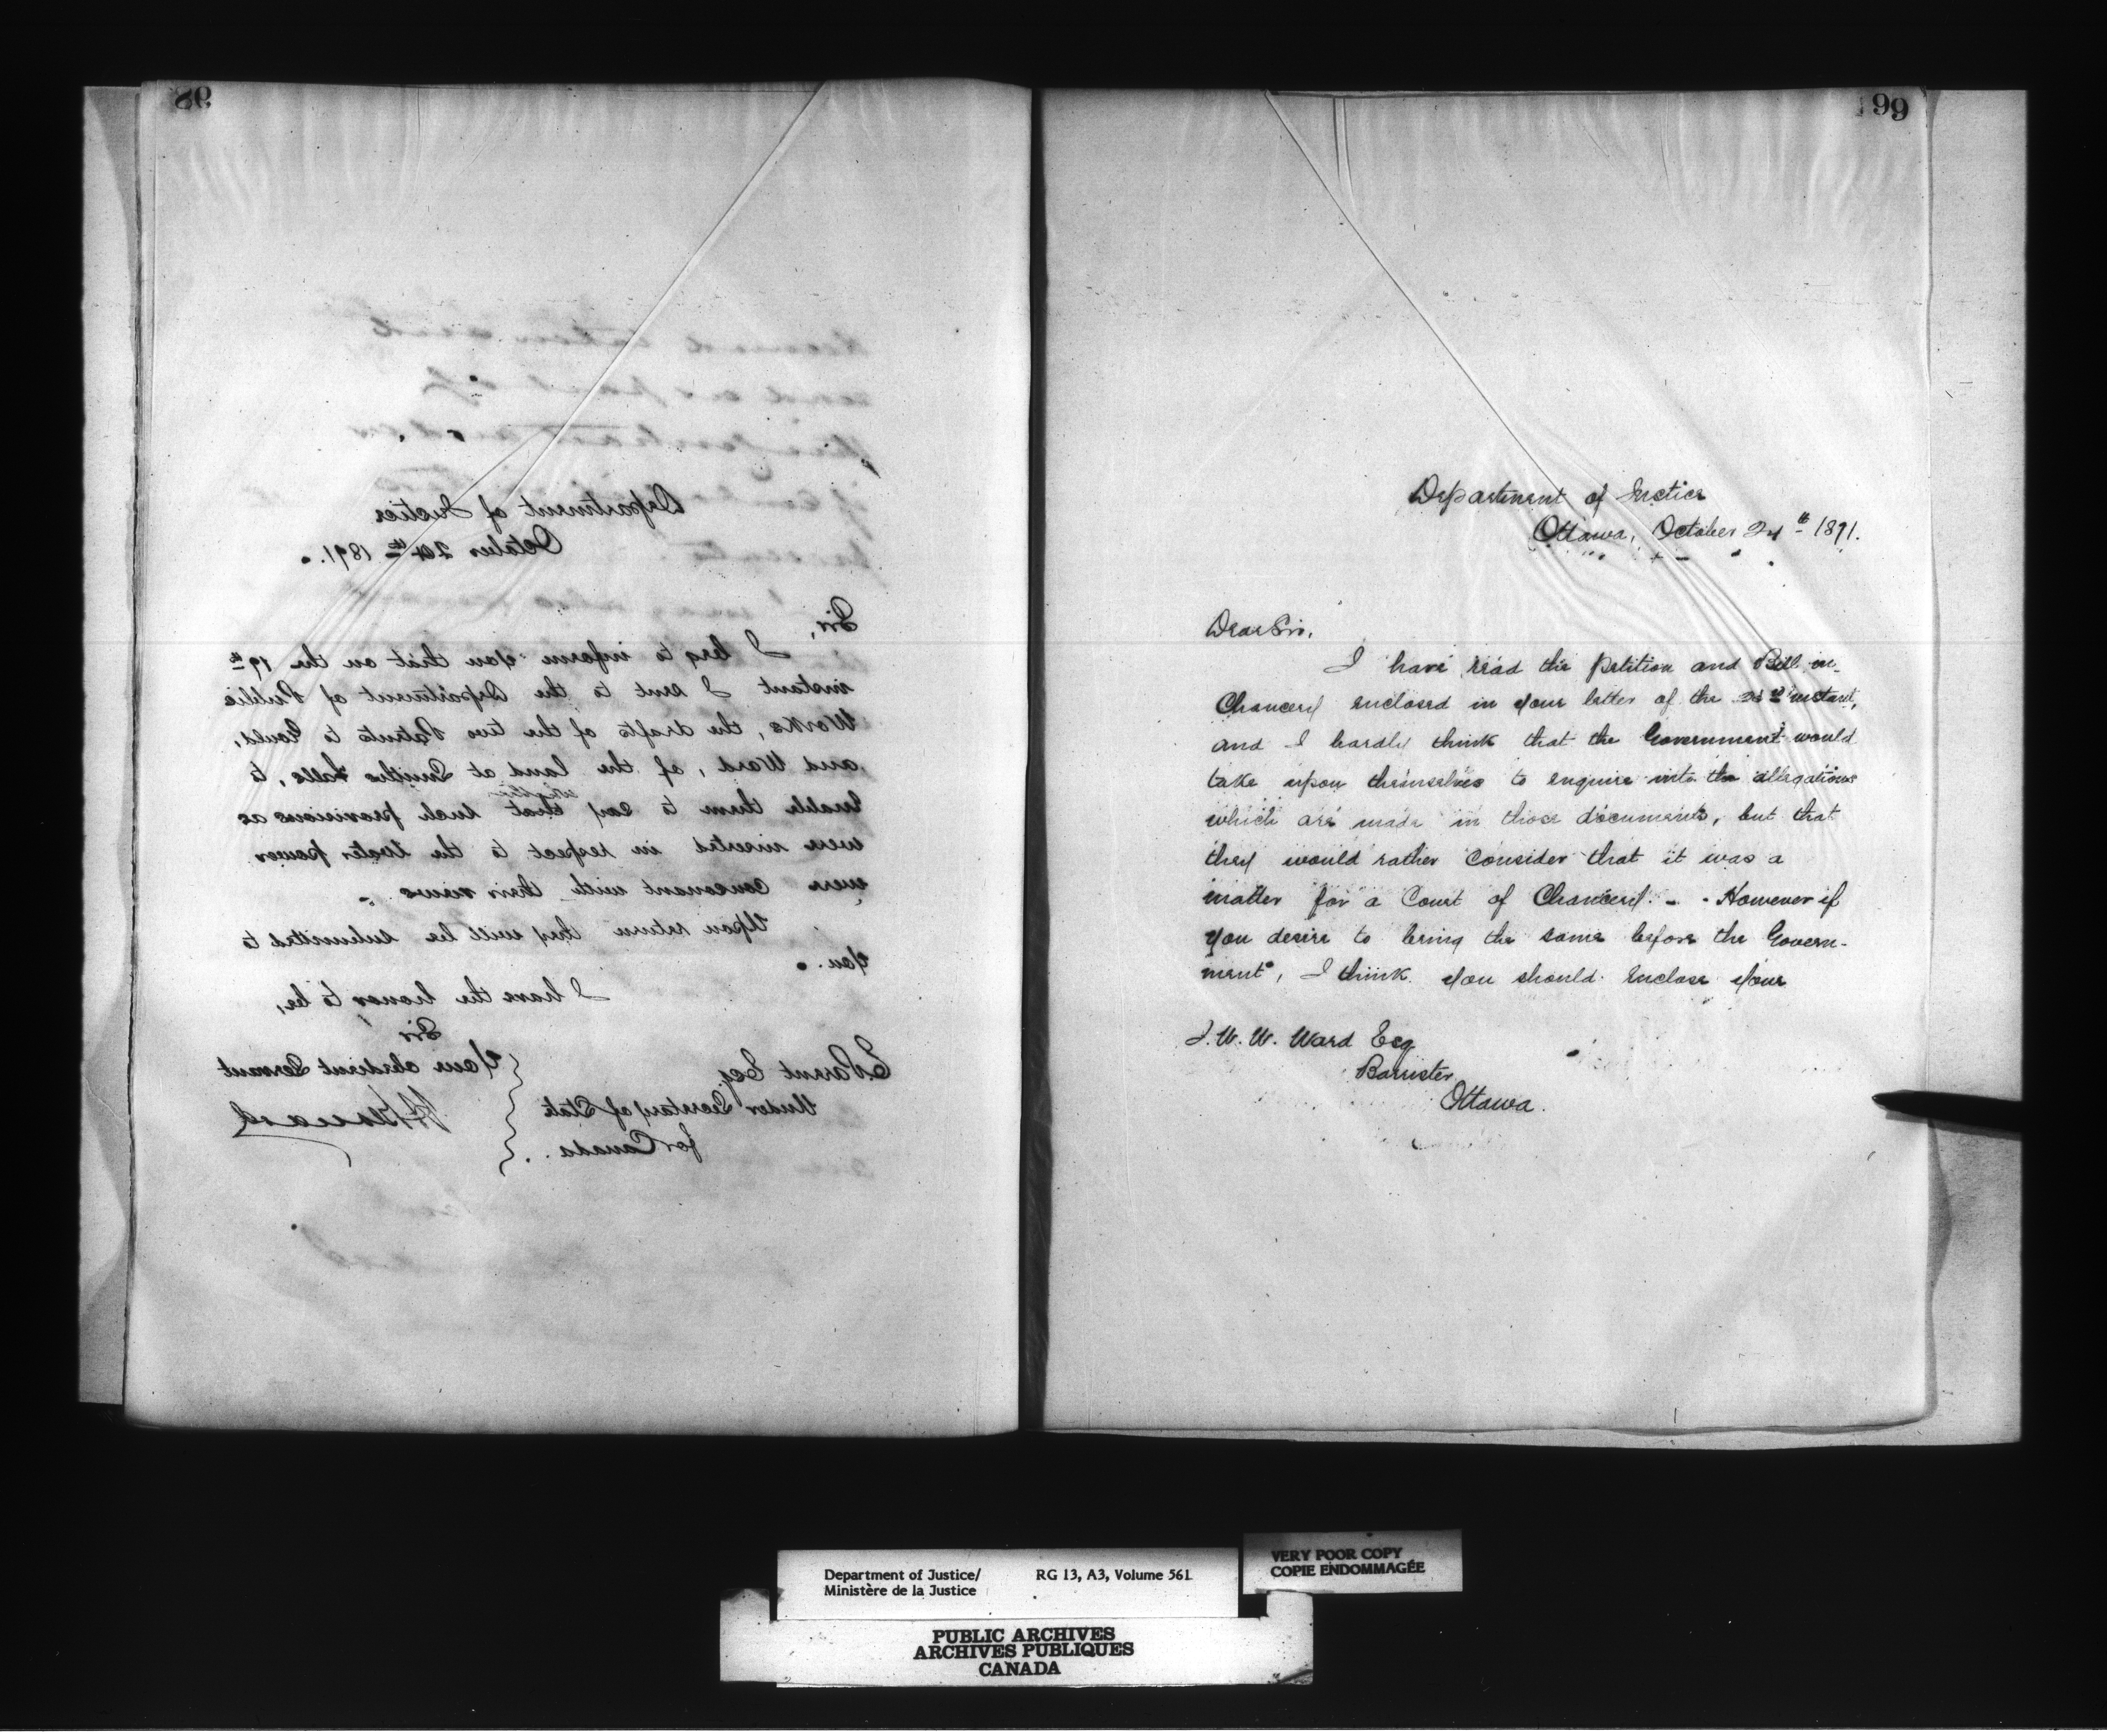 98
Department of Justice
October 24th 1891.
Sir,
I beg to inform you that on the 19th
instant I sent to the Department of Public
Works, the drafts of the two Patents to Gould,
and Ward, of the land at Smiths Falls, to
enable them to say that whether such provisions as
were inserted in respect to the water power
were consonant with their views.
Upon return they will be submitted to
you.
I have the honor to be,
Sir
Your obedient Servant
Esq
Under Secretary of State
for Canada.
99
Department of Justice
Ottawa, October 24th 1891.
Dear Sir,
I have read the Petition and Bill in
Chancery enclosed in your letter of the instant,
and I hardly think that the Government would
take upon themselves to enquire into the allegations
which are made in those documents, but that
they would rather consider that it was a
matter for a Court of Chancery. - However if
you desire to bring the same before the Govern-
ment, I think you should enclose your
W. W. Ward Esq
Barrister
Ottawa.
Department of Justice/ RG 13, A3, Volume 561
Ministère de la Justice
VERY POOR COPY
COPIE ENDOMMAGÉE
PUBLIC ARCHIVES
ARCHIVES PUBLIQUES
CANADA